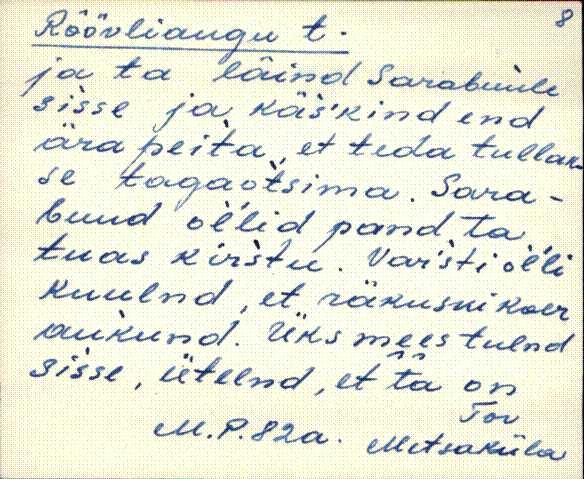 8
Röövliaugu t.
ja ta läind Sarabuule
sisse ja käs'kind end
ära peita, et teda tullak-
se tagaotsima. Sara-
buud ol'lid pand ta
tuas kirstu. Var'sti ol'li
kuulnd, et räkuski koer
aukund. Üks mees tulnd
sisse, ütelnd, et ta on
Tor
M.P.82a. Metsaküla